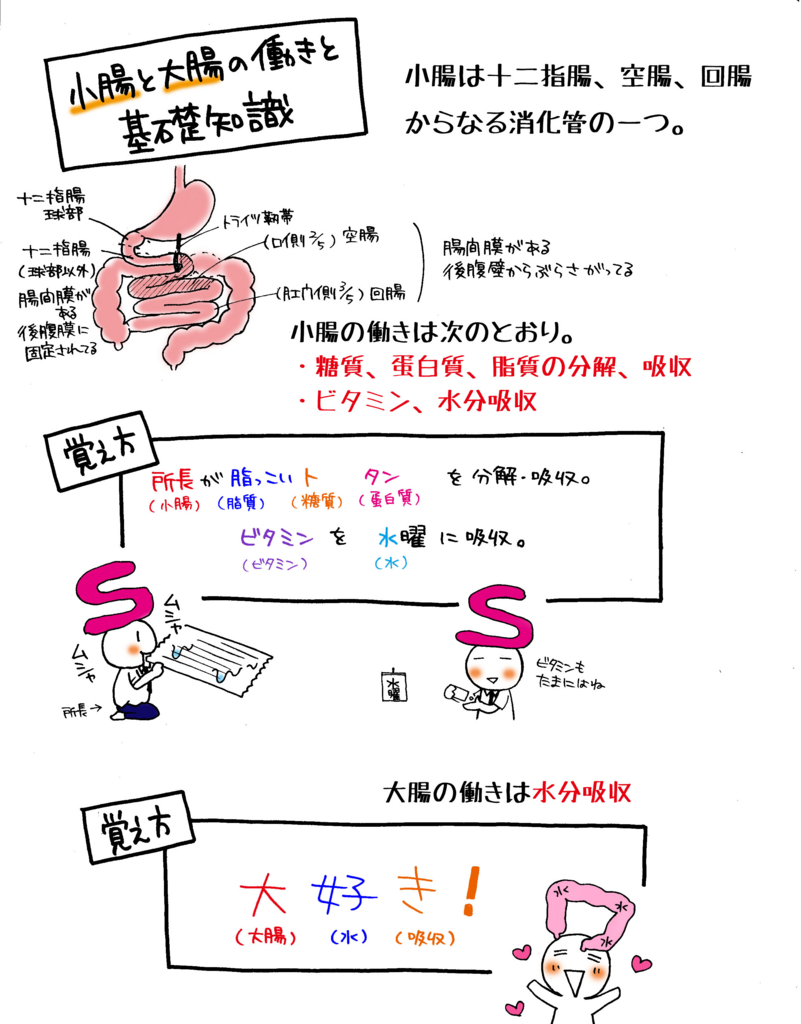 小腸と大腸の働きと
基礎知識
小腸は十二指腸、空腸、回腸
からなる消化管の一つ。
十二指腸
球部
十二指腸
(球部以外)
腸間膜が
ある
後腹膜に
固定されてる
トライツ靭帯
(口側2/5)空腸
(肛門側3/5)回腸
腸間膜がある
後腹壁からぶらさがってる
小腸の働きは次のとおり。
・糖質、蛋白質、脂質の分解、吸収
・ビタミン、水分吸収
覚え方
所長が脂っこいト タンを分解・吸収。
(小腸) (脂質) (糖質) (蛋白質)
ビタミンを水曜に吸収。
(ビタミン) (水)
S
ムシャ
ムシャ
所長→
S
水曜
ビタミンも
たまにはね
大腸の働きは水分吸収
覚え方
大好き!
(大腸) (水) (吸収)
水
水
水